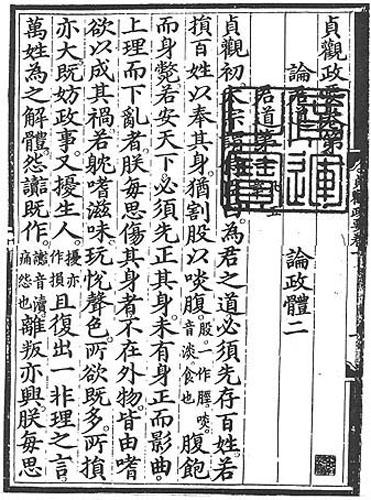 貞觀政要卷第
論君道 論政體二
君道第
貞觀初。太宗謂侍臣曰。為君之道。必須先存百姓。若
損百姓以奉其身。猶割股以啖腹。股。一作脛。啖。音淡。食也腹飽
而身斃。若安天下。必須先正其身。未有身正而影曲。
上理而下亂者。朕每思傷其身者。不在外物。皆由嗜
欲以成其禍。若躭嗜滋味。玩悅聲色。所欲既多。所損
亦大。既妨政事。又擾生人。擾亦作損且復出一非理之言。
萬姓為之解體。怨讟既作。讟音瀆。痛怨也離叛亦興。朕每思